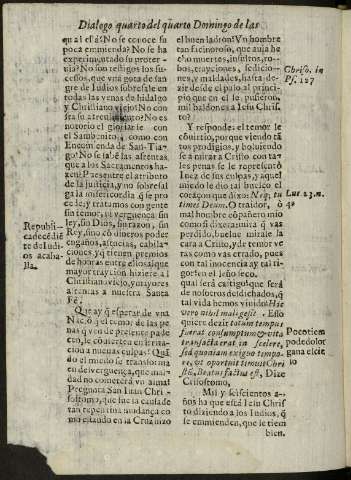 Dialogo quarto del quarto Domingo de las
qual està? No se conoce su
poca emmienda? No se ha
experimentado su proter-
uia? No son testigos los su-
cessos, que vna gota de san-
gre de Iudios sobresale en
todas las venas de hidalgo
y Christiano viejo? No con
sta su atreuimiento? No es
notorio el gloriarse con el
Sambenito, como con
Encomienda de San-Tia-
go? No se sabe las afrentas
que a los Sacramentos ha-
zen? Presentese el atributo
de la justicia, y no sobresal
ga la misericordia que se pro
cede; y tratamos con gente
sin temor, ni verguença, sin
Rey, sin Dios, sin razon, sin
Rey, sino es dineros poder
engaños, astucias, cabila-
ciones, y q̃ tienen premios
de honras entre ellos al que
mayor traycion hiziere al
Christiano viejo, y mayores
afrentas a nuestra Santa
Fè.
Republi-
ca decẽdiẽ
te de Iudi-
os acaba-
lla.
Que ay q̃ esperar de vna
Nació, q̃ el temor de las pe
nas que en de presente pade
cen, le conuierten en irrita-
cion a nueuas culpas? Quã
do el medio se transforma
en desverguença, que mal-
dad no cometerà vn alma?
Pregunta San Iuan Chri-
sostomo, que fue la causa de
tan repentina mudança co
mo citando en la Cruz hizo
el buen ladron? Vn hombre
tan facinoroso, que auia he
cho muertes, insultos, ro-
bos, trayciones, sedicio-
nes, y maldades, hasta de-
zir desde el palo al princi-
pio que en el le pusieron,
mil baldones a Iesu Chris-
to?
Chriso. in
Ps. 127
Y responde: el temor le
cõuirtio, por que viendo tã
tos prodigios, y boluiendo
se a mirar a Christo con ta-
les penas se le representò
Iuez de sus culpas, y aquel
miedo le dio tal buelco el
coraçon que dixo: Neq; tu
times Deum, O traidor, o
mal hombre cõpañero mio
Luc. 23. n.
40
como si dixera: mira q̃ vas
perdido, buelue mirale la
cara a Cristo, y de temor ve
tas como vas errado, pues
con tal inocencia ay tal ri-
gor? en el leño seco.
qual serà castigo? que serà
de nosotros desdichados, q̃
tal vida hemos viuido? Hic
vero nihil mali gessit. Esso
quiere dezir totum tempus
fuerat consumptum & vita
transacta erat in scelere,
sed quoniam exiguo tempo-
re, vt oportuit timuit Chri
stũ, Beatus factus est, Dize
Crisostomo,
Poco tiem
po de dolor
gana el cie
lo
Mil y seiscientos a-
ños ha que està Iesu Chris
to diziendo a los Iudios, q̃
se emmienden, que le tiem
bien.